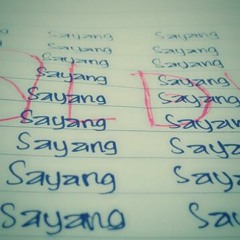 Sayang Sayang
Sayang Sayang
Sayang Sayang
Sayang Sayang
Sayang Sayang
Sayang Sayang
Sayang
Sayang
Sayang